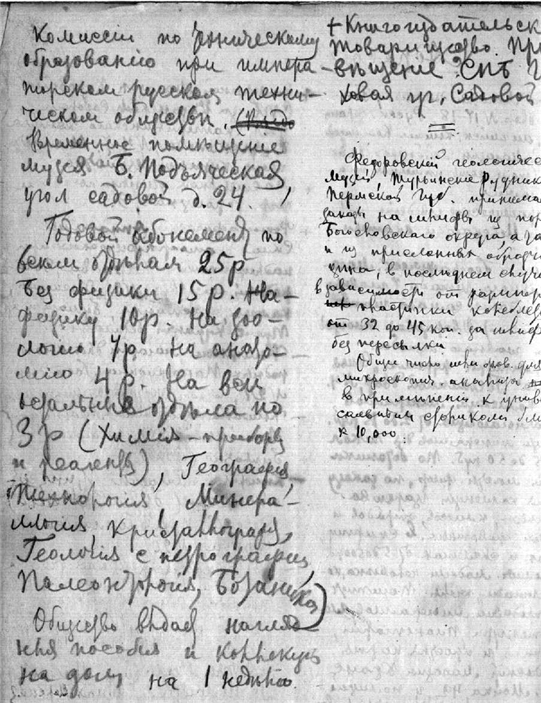 Комиссiи по техническому
образованiю при импера-
торском русском техни-
ческом обществе.
Временное помещенiе
музея Б. Подьяческая
угол садовой д. 24.
Годовой абонемент по
всем отделам 25 р
Без физики 15 р. На
физику 10 р. На зоо-
логiю 7 р на анато-
мiю 4 р. На все
остальные отделы по
3 р (Химiя - приборы
и реагенты), Географiя,
Технологiя, Минера-
логiя, Кристаллографiя,
Геологiя с петрографiей
Палеонтологiя, Ботаника)
Общество выдает нагляд-
ныя пособiя и коллекцiи
на дом на 1 неделю.
+ Книгоиздательск
Товарищество. Пр
-вещение СПБ
ул, Садовой
Федоровский геологическ
музей, Турьинские рудник
Пермской Губ. принима
заказы на шлифы из пор
Богословского округа, а та
и из присланных образц
в последнем случ
в зависимости от
от 32 до 45 коп. за шлиф
без пересылки
Общее число шлифов для
микроскопич. анализа
в применении к
к 10,000.